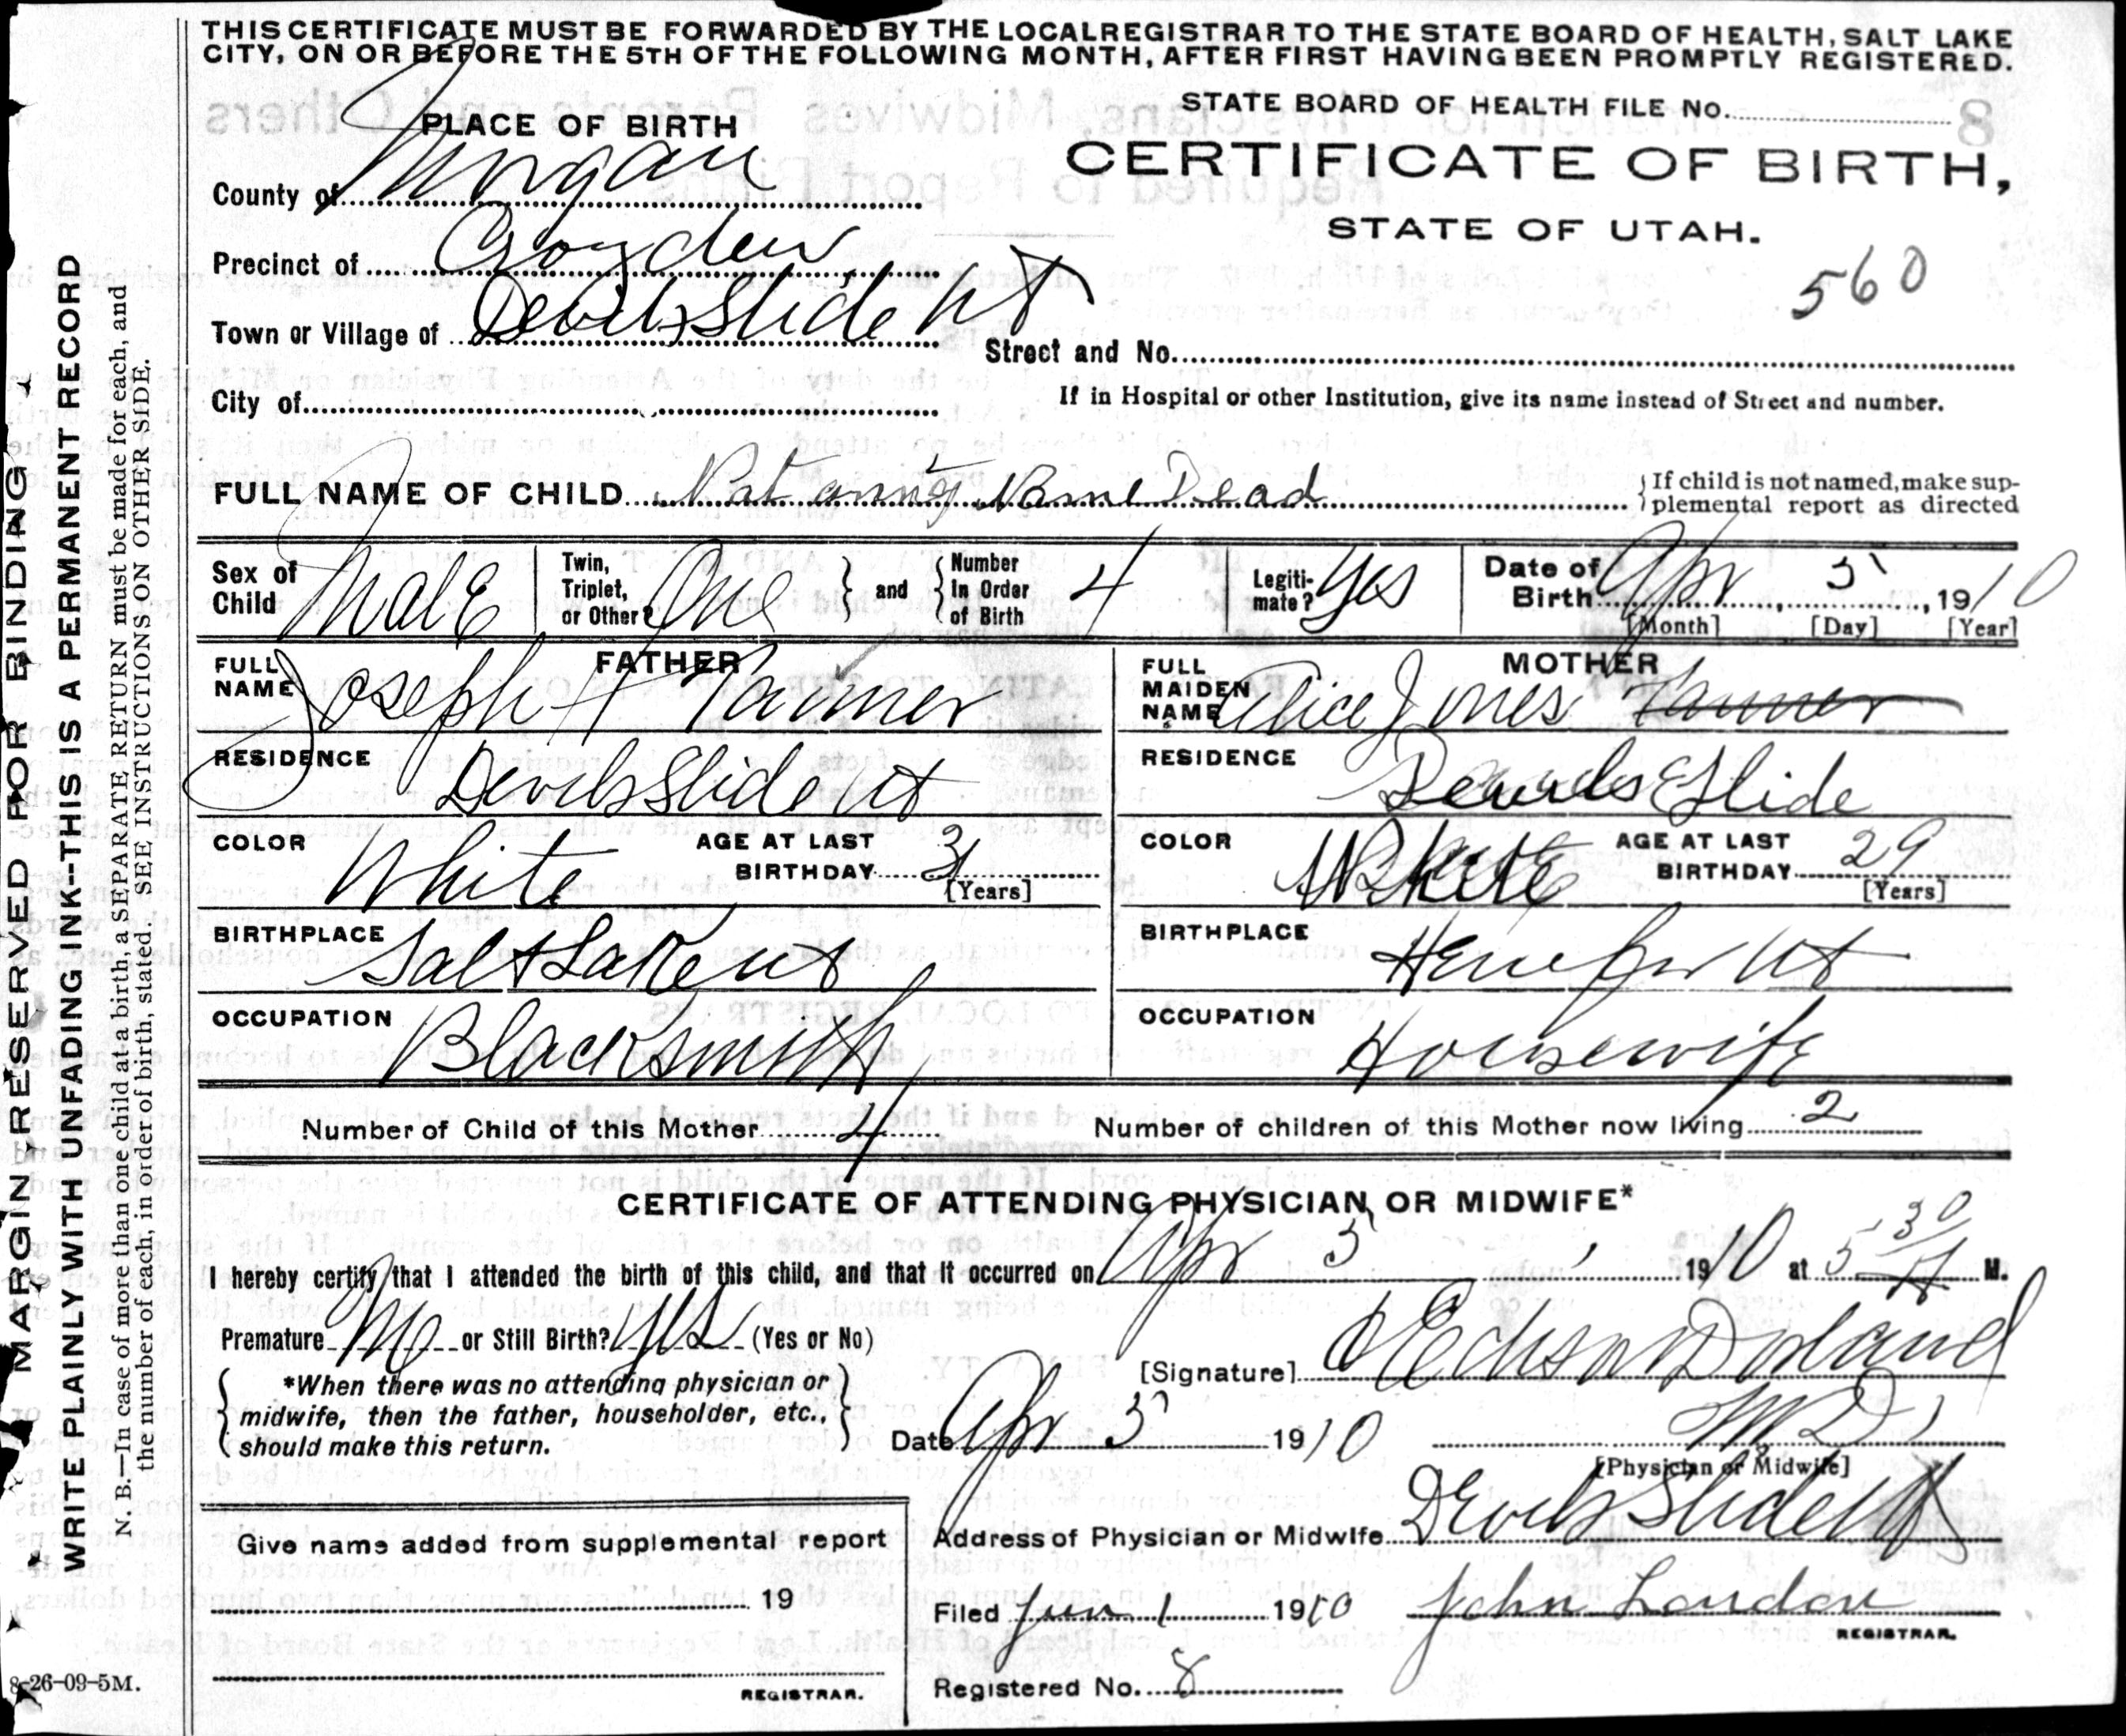 THIS CERTIFICATE MUST BE FORWARDED BY THE LOCAL REGISTRAR TO THE STATE BOARD OF HEALTH, SALT LAKE
CITY, ON OR BEFORE THE 5TH OF THE FOLLOWING MONTH, AFTER FIRST HAVING BEEN PROMPTLY REGISTERED.
STATE BOARD OF HEALTH FILE No.
8
PLACE OF BIRTH
CERTIFICATE OF BIRTH,
County of Morgan
STATE OF UTAH.
Precinct of Croyden
560
Town or Village of Devils Slide Ut
Street and No.
City of
If in Hospital or other Institution, give its name instead of Street and number.
FULL NAME OF CHILD Name Dead
If child is not named, make sup-
plemental report as directed
Sex of Child Male
Twin, Triplet, or Other? One
and
Number In Order of Birth 4
Legiti-mate? Yes
Date of Birth Apr 5, 1910
[Month] [Day] [Year]
FATHER
FULL NAME Joseph H Tanner
RESIDENCE Devils Slide Ut
COLOR White
AGE AT LAST BIRTHDAY 31 [Years]
BIRTHPLACE Salt Lake Ut
OCCUPATION Blacksmith
MOTHER
FULL MAIDEN NAME Alice Jones Tanner
RESIDENCE Devils Slide
COLOR White
AGE AT LAST BIRTHDAY 29 [Years]
BIRTHPLACE Henefer Ut
OCCUPATION Housewife
Number of Child of this Mother 4
Number of children of this Mother now living 2
CERTIFICATE OF ATTENDING PHYSICIAN OR MIDWIFE*
I hereby certify that I attended the birth of this child, and that it occurred on Apr 5, 1910 at 5 30 M.
Premature No or Still Birth? Yes (Yes or No)
*When there was no attending physician or
midwife, then the father, householder, etc.,
should make this return.
[Signature] Edison Doland
Date Apr 5 1910
M D
[Physician or Midwife]
Address of Physician or Midwife Devils Slide Ut
Give name added from supplemental report
19
REGISTRAR.
Filed Jun 1 1910
John London
REGISTRAR.
Registered No. 8
MARGIN RESERVED FOR BINDING
WRITE PLAINLY WITH UNFADING INK--THIS IS A PERMANENT RECORD
N. B.—In case of more than one child at a birth, a SEPARATE RETURN must be made for each, and
the number of each, in order of birth, stated. SEE INSTRUCTIONS ON OTHER SIDE.
8-26-09-5M.